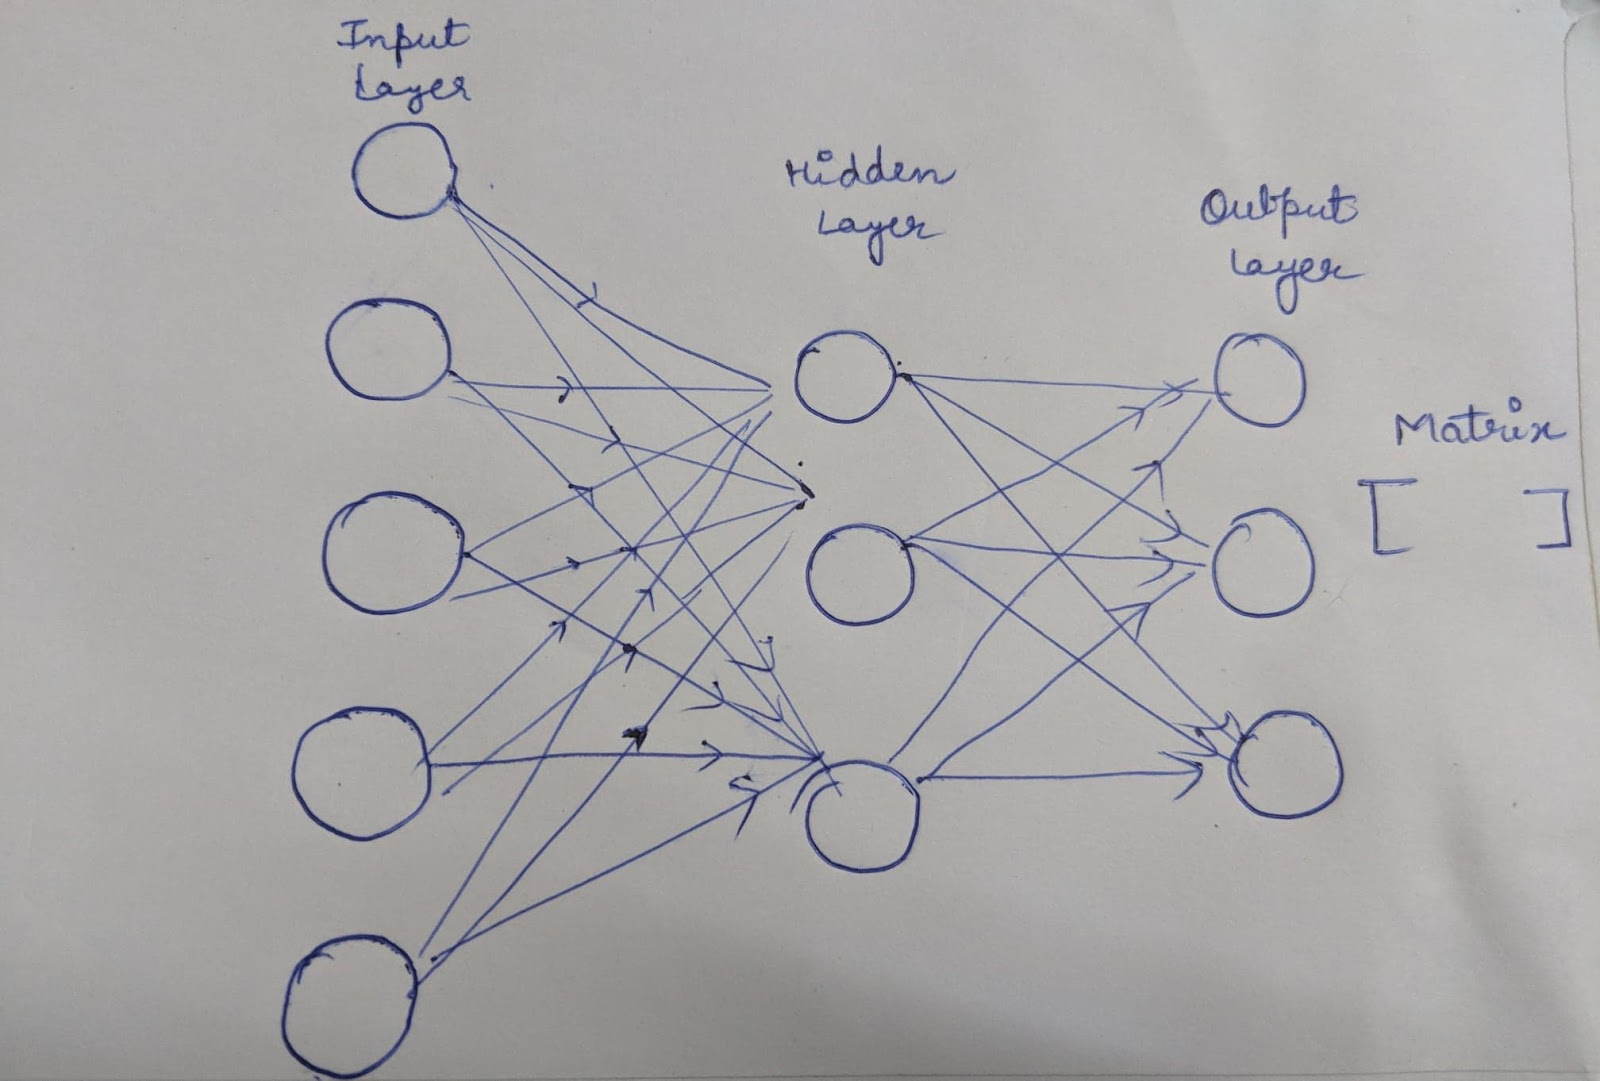 Input
Layer
Hidden
Layer
Output
Layer
Matrix
[ ]